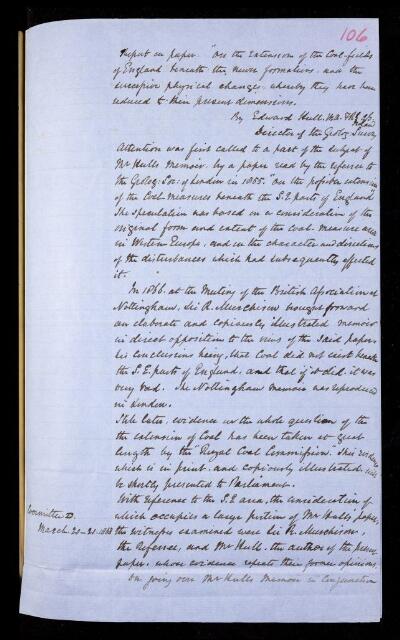 106
Report on paper. "On the extension of the Coal-fields
of England beneath the newer formations, and the
successive physical changes whereby they have been
reduced to their present dimensions.
By Edward Hull. M.A. F.R.S. &c.
Director of the Geolog. Survey
Attention was first called to a part of the subject of
Mr Hull's memoir, by a paper read by the referee to
the Geolog: Soc: of London in 1855. "On the possible extension
of the Coal-measures beneath the S.E. parts of England"
The speculation was based on a consideration of the
original form and extent of the Coal-measure area
in Western Europe, and on the character and directions
of the disturbances which had subsequently affected
it.
In 1866. at the Meeting of the British Association at
Nottingham, Sir R. Murchison brought forward
an elaborate and copiously illustrated memoir
in direct opposition to the views of the said paper,
his conclusions being, that Coal did not exist beneath
the S.E. parts of England, and that if it did it was
very bad. The Nottingham memoir was reproduced
in London.
Still later, evidence on the whole question of the
the extension of Coal has been taken at great
length by the Royal Coal Commission. This evidence
which is in print, and copiously illustrated, will
be shortly presented to Parliament.
With reference to the S.E area, the consideration of
which occupies a large portion of Mr Hull's paper,
Committee D.
March 20-21. the witnesses examined were Sir R. Murchison,
the Referee, and Mr Hull. the author of the present
paper, whose evidence repeats their former opinions.
On going over Mr Hull's Memoir in conjunction